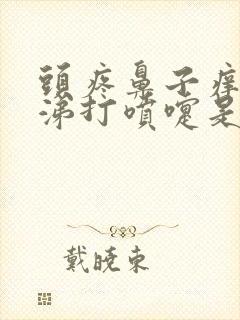 頭疼鼻子痒
涕打噴嚏是
戴曉東